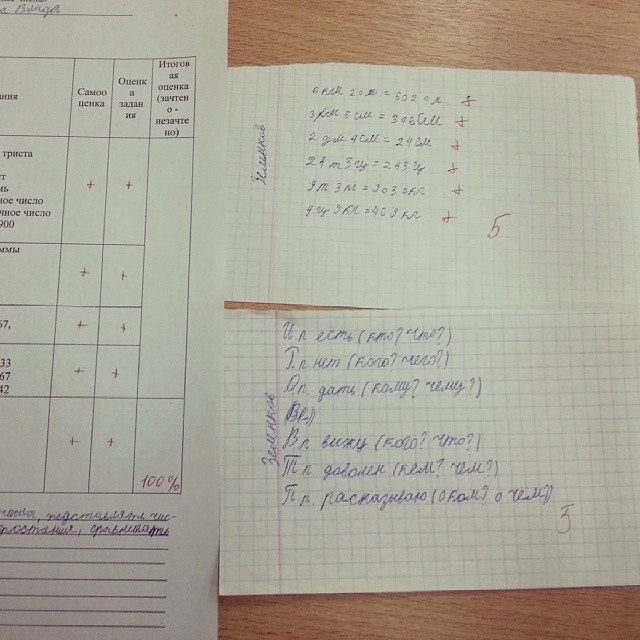 а Влада
ания
Самоо
ценка
Оценк
а
задан
ия
Итогов
ая
оценка
(зачте
но -
незачте
но)
триста
т
мь
ное число
чное число
900
+ +
ммы
+ +
67,
+ +
33
67
42
+ +
+ +
100%
числа, педставлять чис-
зростания, сравнивать
Земнков
6 км 20 м = 6020 м +
3 км 6 см +
2 дм 4 см = 24 см +
24 т 3 ц = 243 ц +
9 т 3 = 9030 кг +
4 ц 9 кг = 409 кг +
5
Земнков
И п есть (кто? что?)
Г. п нет (кого? чего?)
п. дать (кому? чему?)
В п вижу (кого? что?)
Т п доволен (кем? чем?)
П п. расказываю (о ком? о чём?)
5